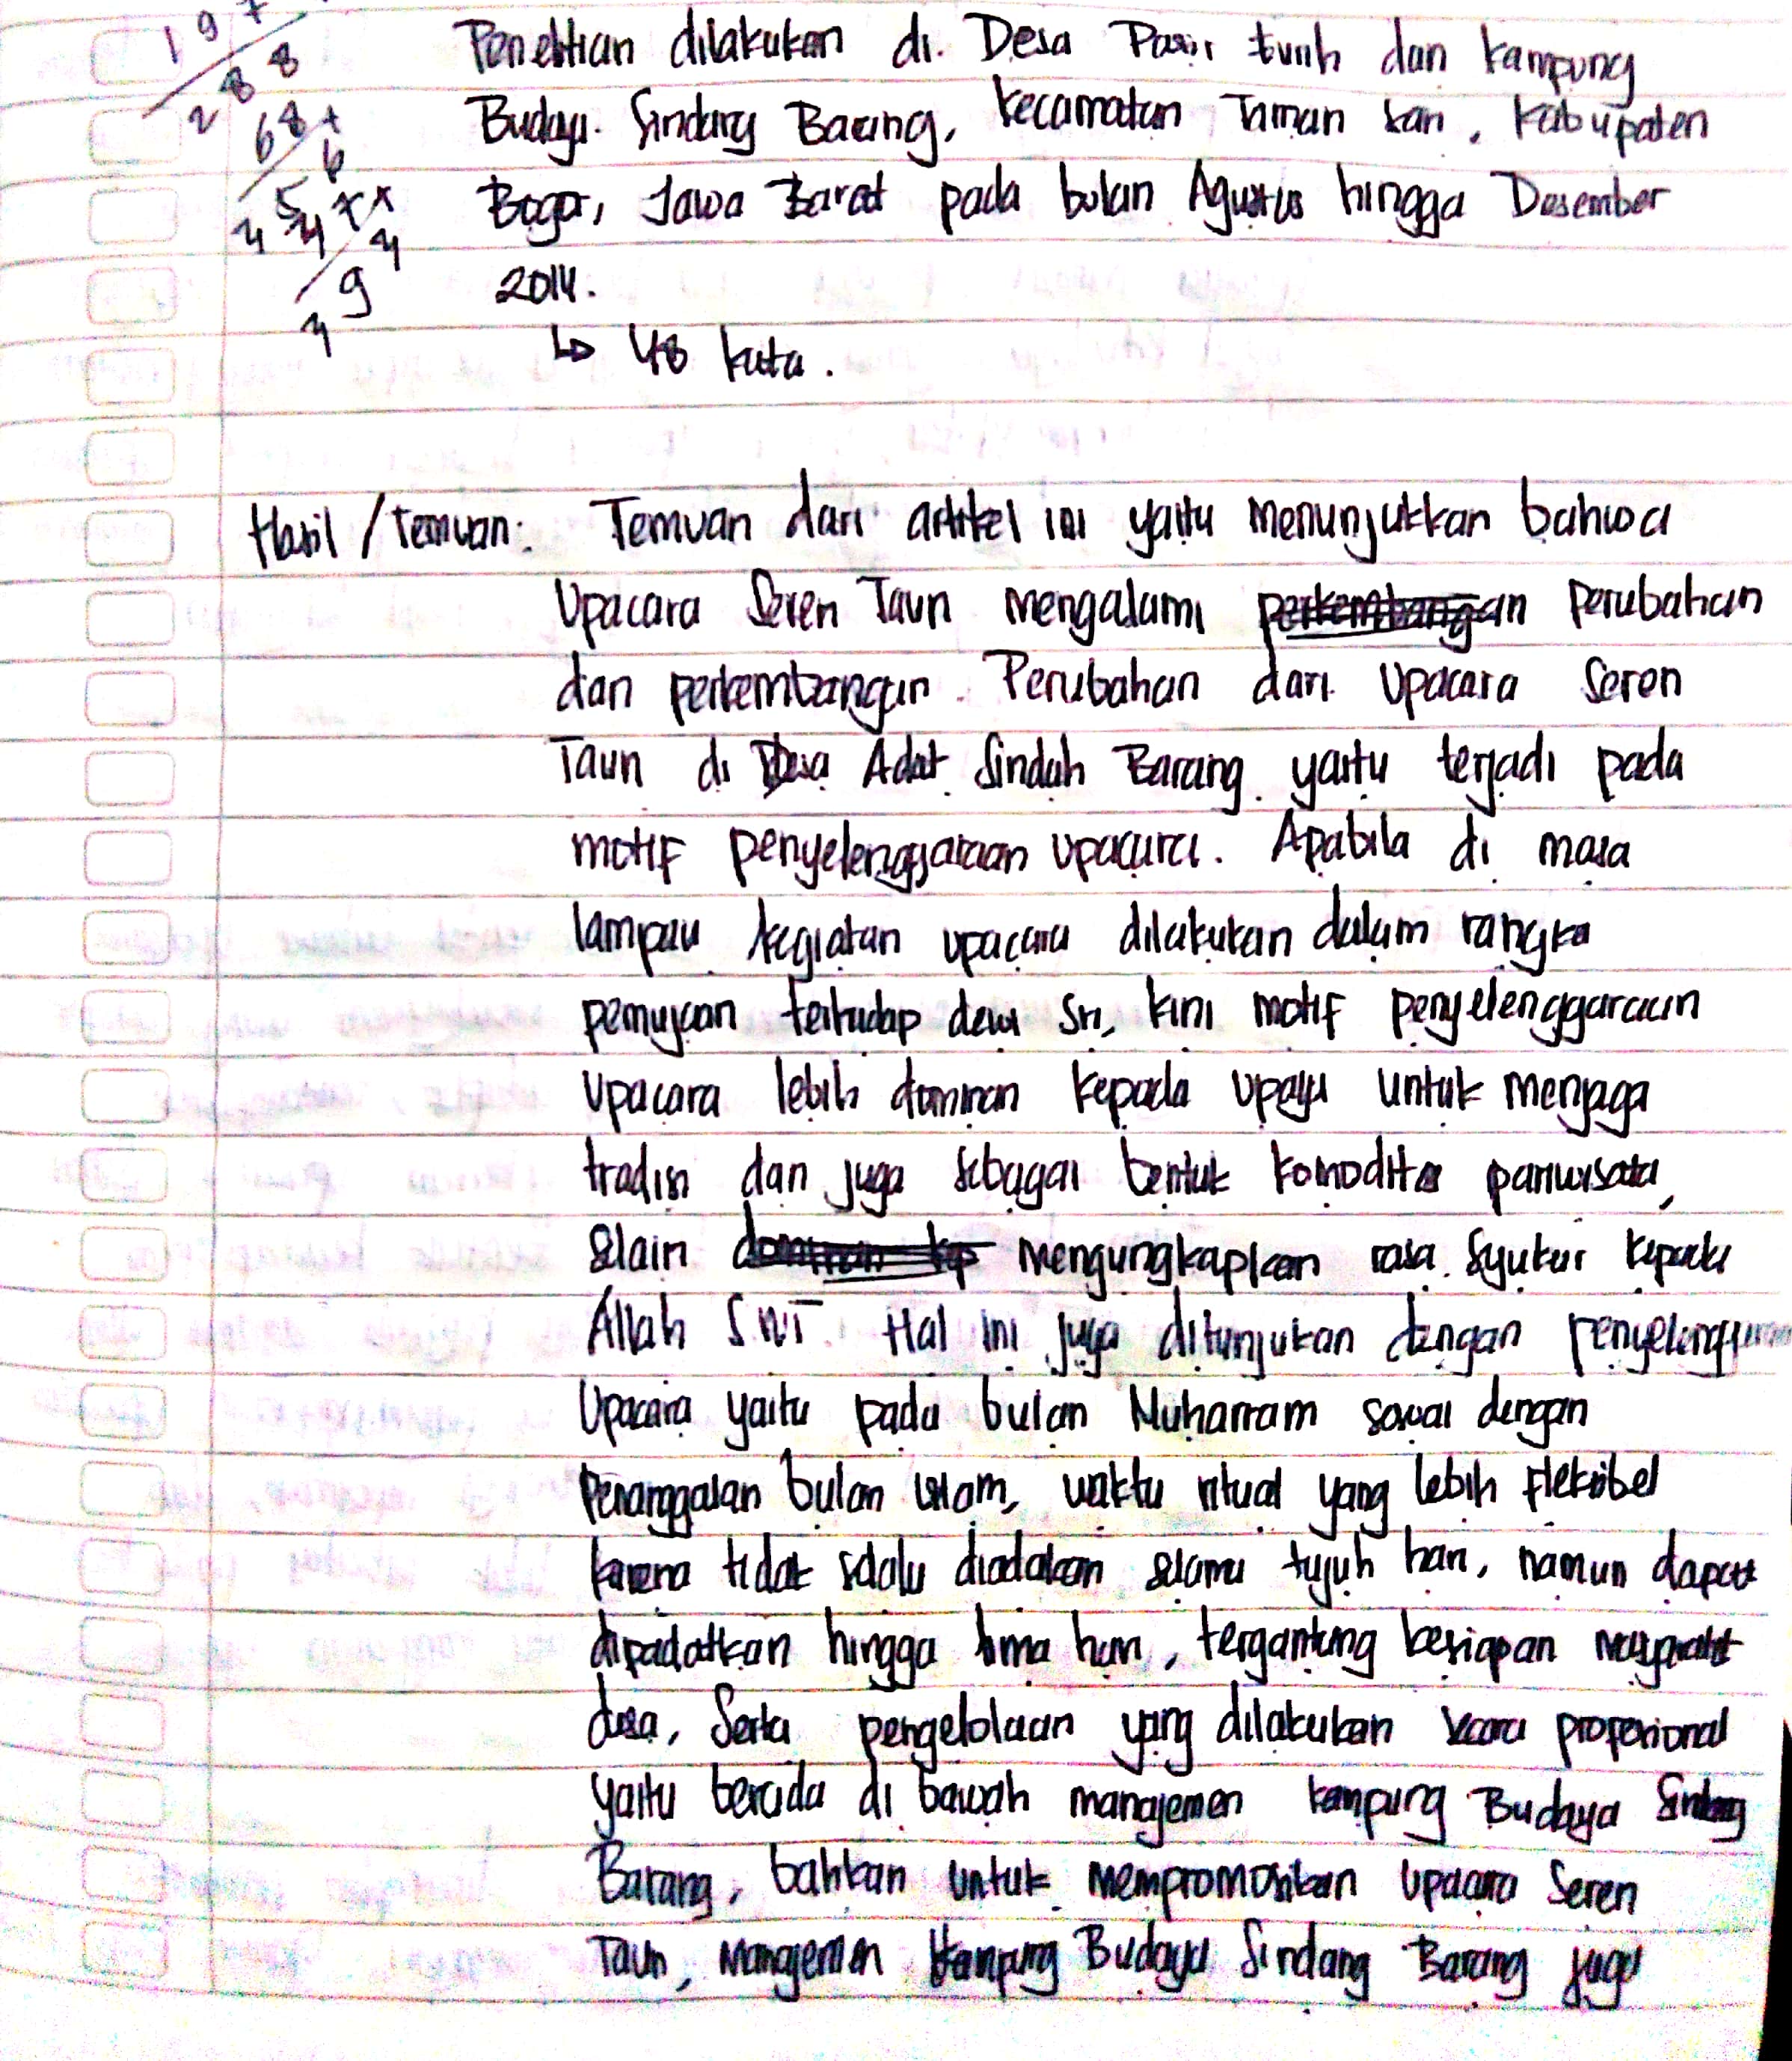 Penelitian dilakukan di Desa Pasir Eurih dan Kampung
Budaya Sindang Barang, Kecamatan Taman Sari, Kabupaten
Bogor, Jawa Barat pada bulan Agustus hingga Desember
2014.
↳ 48 kata.
Hasil / Temuan: Temuan dari artikel ini yaitu menunjukkan bahwa
Upacara Seren Taun mengalami perkembangan perubahan
dan perkembangan. Perubahan dari upacara Seren
Taun di Desa Adat Sindah Barang yaitu terjadi pada
motif penyelenggaraan upacara. Apabila di masa
lampau kegiatan upacara dilakukan dalam rangka
pemujaan terhadap dewi Sri, kini motif penyelenggaraan
upacara lebih dominan kepada upaya untuk menjaga
tradisi dan juga sebagai bentuk komoditas pariwisata,
selain mengungkapkan rasa syukur kepada
Allah SWT Hal ini juga ditunjukan dengan
Upacara yaitu pada bulan Muharram sesuai dengan
Penanggalan bulan islam, waktu ritual yang lebih fleksibel
karena tidak selalu diadakan selama tujuh hari, namun dapat
dipadatkan hingga lima hari, tergantung kesiapan masyarakat
desa, Serta pengelolaan yang dilakukan secara profesional
yaitu berada di bawah manajemen Kampung Budaya Sindang
Barang, bahkan untuk mempromosikan Upacara Seren
Taun, Manajemen Kampung Budaya Sindang Barang juga